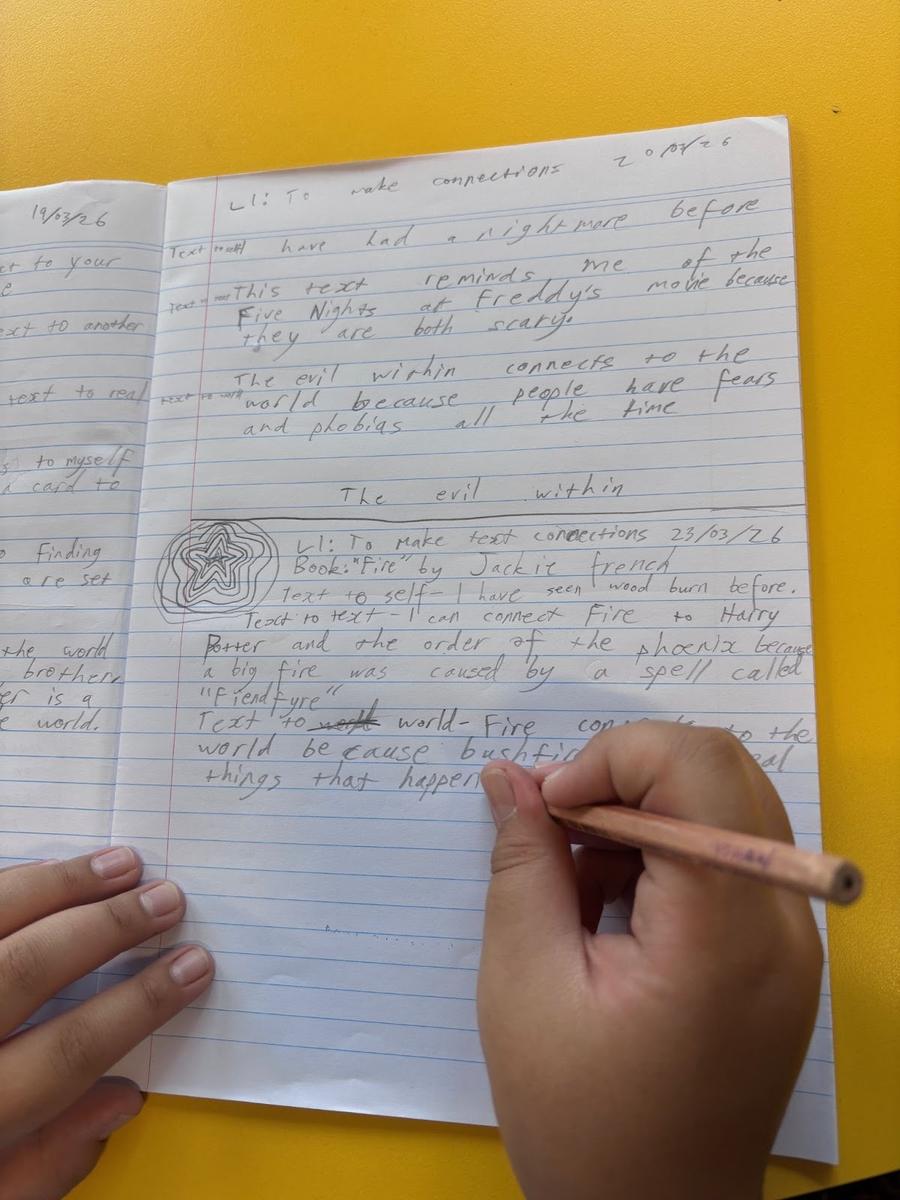 19/03/26
to your
e
ext to another
text to real
to myself
card to
Finding
are set
the world
brother
er is a
e world.
LI: To make connections 20/03/26
Text to self I have had a nightmare before
This text reminds me of the
Five Nights at Freddy's movie because
they are both scary.
The evil within connects to the
text to world world because people have fears
and phobias all the time
The evil within
LI: To make text connections 23/03/26
Book: "Fire" by Jackie french
Text to self - I have seen wood burn before.
Text to text - I can connect Fire to Harry
Potter and the order of the phoenix because
a big fire was caused by a spell called
"fiendfyre"
Text to world - Fire to the
world because
things that happen